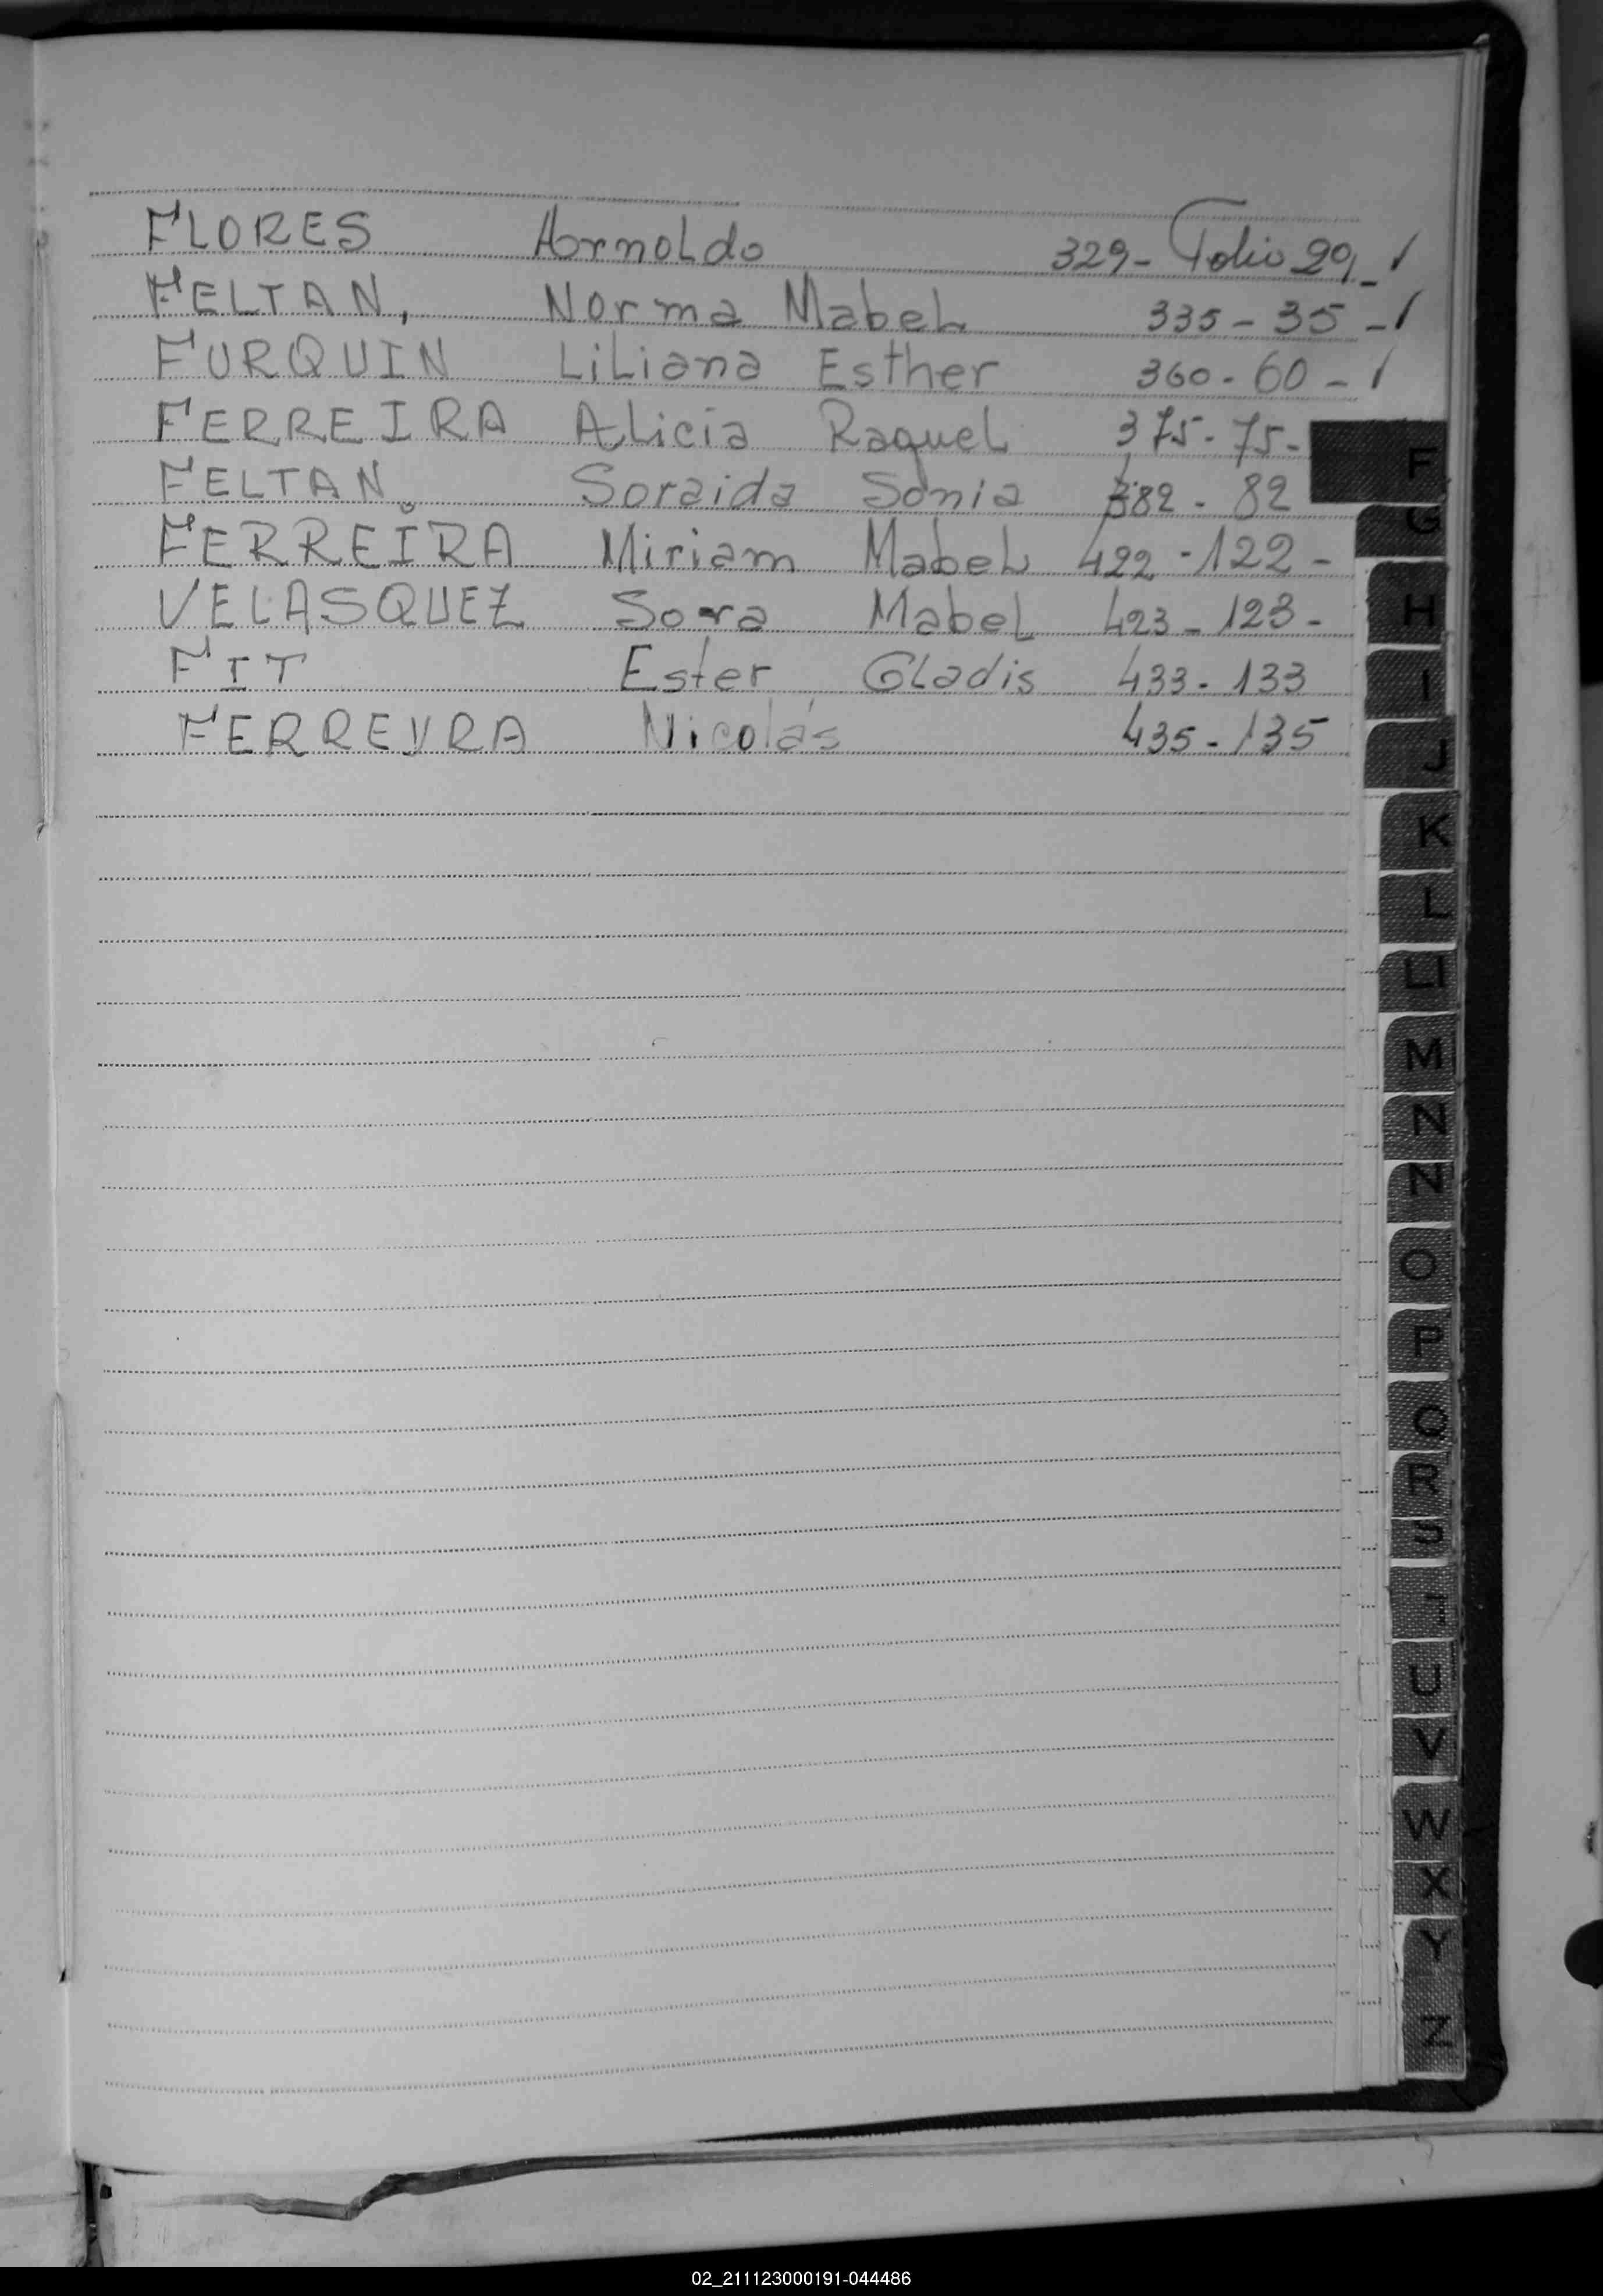 FLORES Arnoldo 329- Folio 29_/
FELTAN, Norma Mabel 335-35-/
FURQUIN Liliana Esther 360-60-/
FERREIRA Alicia Raquel 375-75-
FELTAN Soraida Sonia 382-82
FERREIRA Miriam Mabel 422-122-
VELASQUEZ Sara Mabel 423-123-
FIT Ester Gladis 433-133
FERREYRA Nicolás 435-135
F
G
H
I
J
K
L
Ll
M
N
Ñ
O
P
Q
R
S
T
U
V
W
X
Y
Z
02_211123000191-044486